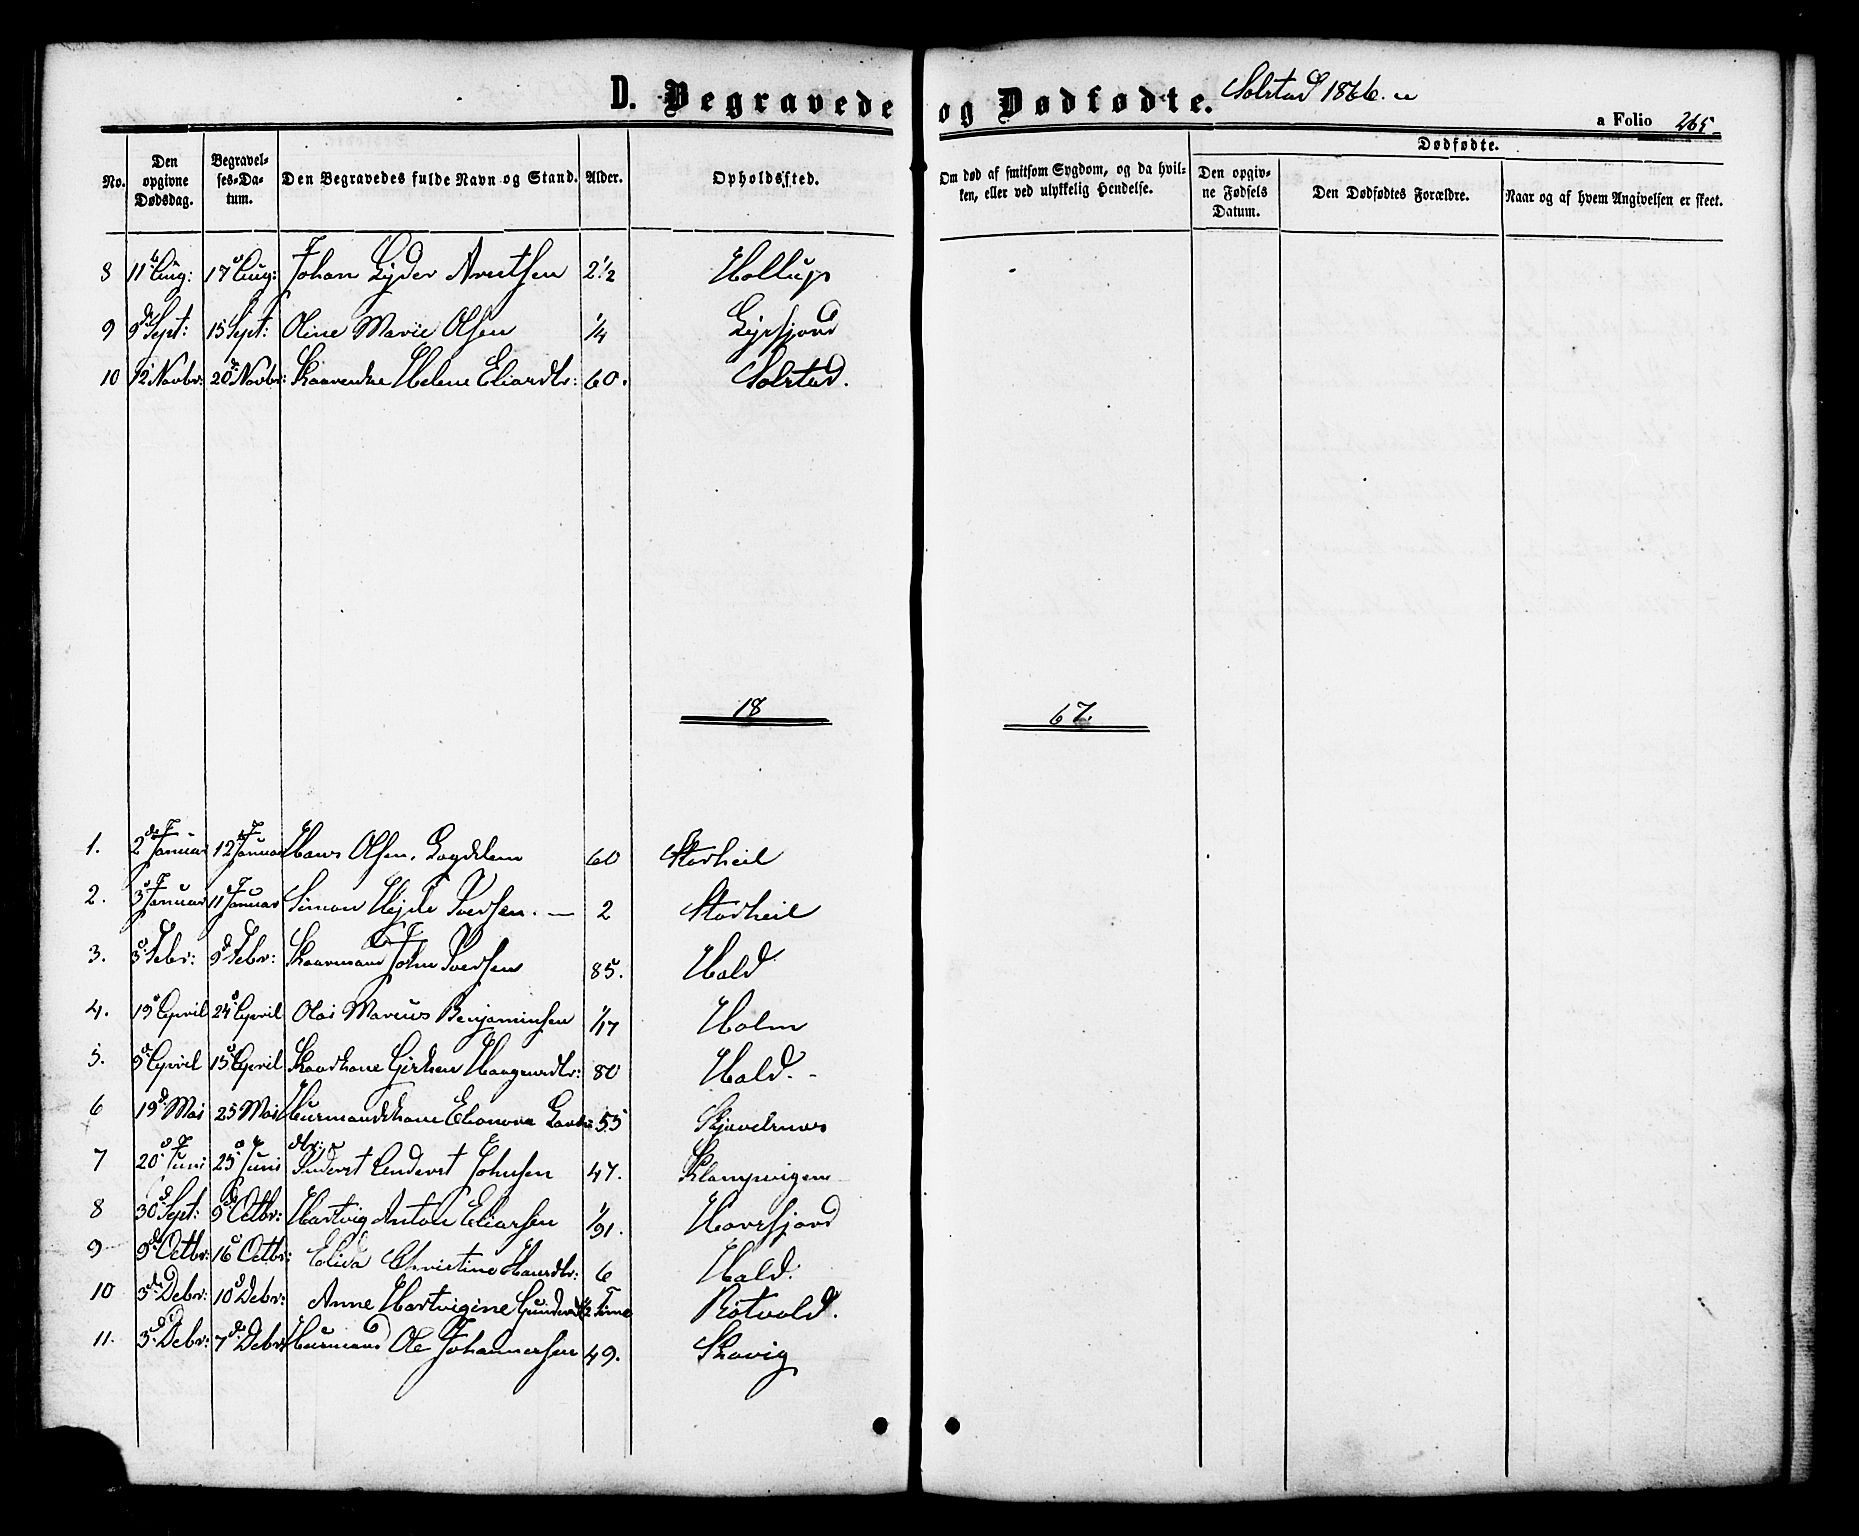 D. Begravede og Dødfødte. Solstad 1866.
a Folio 265
No. Den opgivne Dødsdag. Begravelses-Datum. Den Begravedes fulde Navn og Stand. Alder. Opholdssted. Om død af smitsom Sygdom, og da hvilken, eller ved ulykkelig Hendelse. Dødfødte. Den opgivne Fødsels Datum. Den Dødfødtes Forældre. Naar og af hvem Angivelsen er skeet.
8 11 Aug: 17 Aug: Johan Lyder Arntsen 2 1/2 Hollup
9 9 Sept: 15 Sept: Oline Marie Olsen 1/4 Lysfjord
10 12 Novbr: 20 Novbr: Helene Eliasdtr: 60. Solstad.
18 67.
1. 2 Januar 12 Januar Hans Olsen. 60 Storheil
2. 3 Januar 11 Januar Simon Iversen. — 2 Storheil
3. 3 Febr: 9 Febr: Kaarmand John Iversen 85. Hald
4. 19 April 24 April Olai Marius Benjaminsen 1/17 Holm
5. 9 April 15 April Haagensdtr: 80 Hald. -
6 19 Mai 25 Mai Huusmandskone Elonora 55
dtr:
7 20 Juni 25 Juni Inderst Anderst Johnsen 47. Klampvigen
8 30 Sept: 9 Octbr: Hartvig Anton Eliassen 1/91. Havsfjord
9 9 Octbr: 16 Octbr: Elida Christine Hansdtr: 6 Hald.
10 3 Debr: 10 Debr: Anne Hartvigine 1/2 Time Rotvold.
11. 3 Debr: 7 Debr: Huusmand Ole Johannesen 49. Skavig